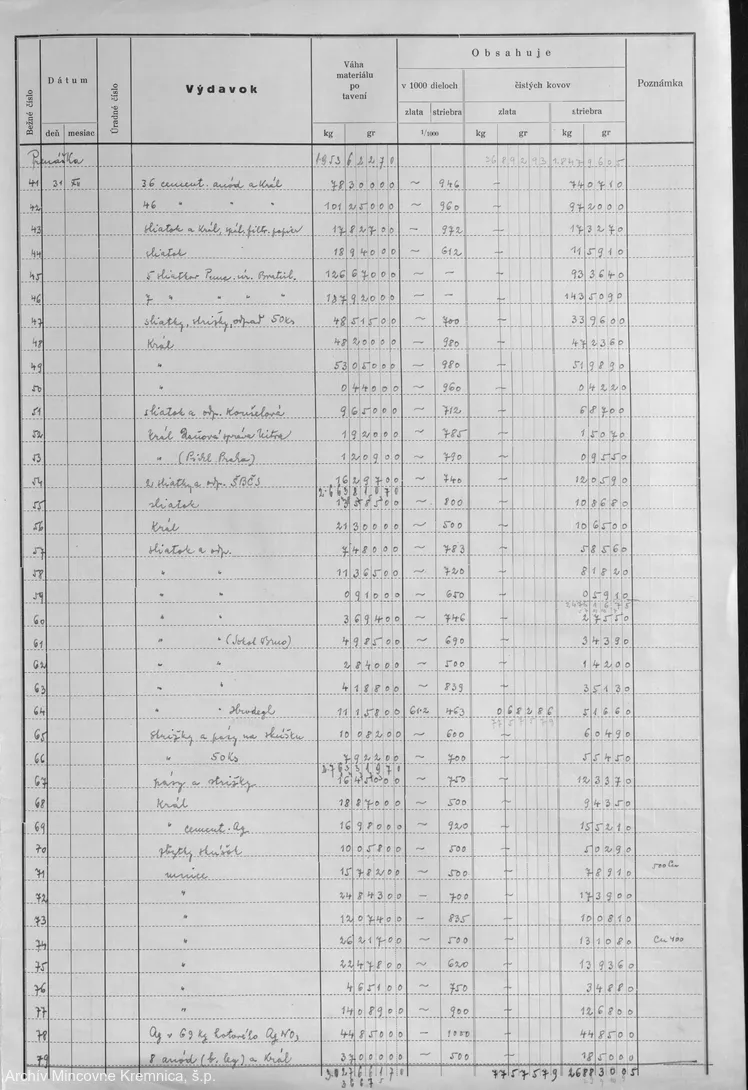 Obsahuje
Bežné číslo
Dátum
Úradné číslo
Výdavok
Váha materiálu po tavení
v 1000 dieloch
čistých kovov
Poznámka
zlata striebra zlata striebra
deň mesiac kg gr 1/1000 kg gr kg gr
Prenáška
41 31 XII 36 cement. anód a Král 78 30000 ~ 946 — 74 0710
42 46 " " " 101 25000 ~ 960 — 97 2000
43 17 82700 - 972 — 17 3270
44 sliatok 18 94000 ~ 612 — 11 5910
45 126 67000 ~ — — 93 3640
46 7 " " " " — — 143 5090
47 sliatky, strižky, odpad 50Ks 48 51500 ~ 700 — 33 9600
48 Král 48 20000 ~ 980 — 47 2360
49 " 53 05000 ~ 980 — 51 9890
50 " 0 44000 ~ 960 — 0 4220
51 sliatok a odp. 9 65000 ~ 712 — 6 8700
52 Král Daňová správa Nitra 1 92000 ~ 785 — 1 5070
53 " (Praha) 1 20900 ~ 790 — 0 9550
54 2 sliatky a odp. ŠBČS 16 29700 ~ 740 — 12 0590
55 sliatok ~ 800 — 10 8680
56 Král 21 30000 ~ 500 — 10 6500
57 sliatok a odp. 7 48000 ~ 783 — 5 8560
58 " " 11 36500 ~ 720 — 8 1820
59 " " 0 91000 ~ 650 — 0 5910
60 " " 3 69400 ~ 746 — 2 7550
61 " " (Sokol Brno) 4 98500 ~ 690 — 3 4390
62 " " 2 84000 ~ 500 — 1 4200
63 " " 4 18800 ~ 839 — 3 5130
64 " " 11 15800 612 463 0 68286 5 1660
65 strižky a pásy na skúšku 10 08200 ~ 600 — 6 0490
66 " 50Ks 7 92200 ~ 700 — 5 5450
67 pásy a strižky 16 45000 ~ 750 — 12 3370
68 Král 18 87000 ~ 500 — 9 4350
69 " cement. Ag 16 98000 ~ 920 — 15 5210
70 zbytky skúšok 10 05800 ~ 500 — 5 0290
71 mince 15 78200 ~ 500 — 7 8910 500 Cu
72 " 24 84300 — 700 — 17 3900
73 " 12 07400 — 835 — 10 0810
74 " 26 21700 ~ 500 — 13 1080 Cu 400
75 " 22 47800 ~ 620 — 13 9360
76 " 4 65100 ~ 750 — 3 4880
77 " 14 08900 ~ 900 — 12 6800
78 Ag v 69 Kg hotového AgNO3 44 85000 — 1000 — 44 8500
79 8 anód (b. leg) a Král 37 00000 ~ 500 — 18 5000
77 57579 2688 3005
Archív Mincovne Kremnica, š.p.